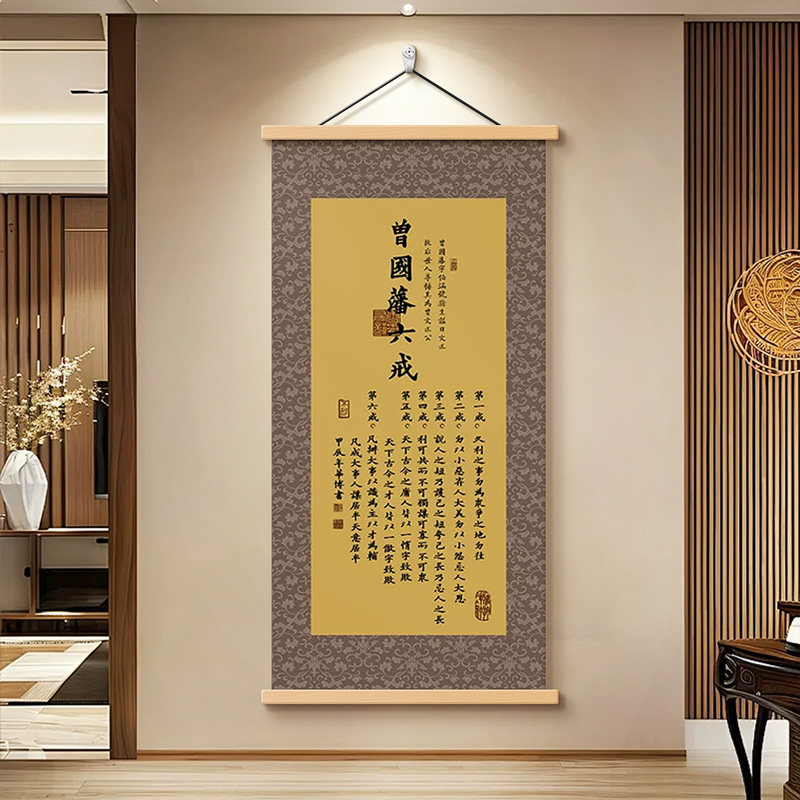 曾國藩六戒
曾國藩字伯涵號滌生諡曰文正
故后世人尊稱其為曾文正公
第一戒。久利之事勿為衆爭之地勿往
第二戒。勿以小惡棄人大美勿以小怨忘人大恩
第三戒。說人之短乃護己之短夸己之長乃忌人之長
第四戒。利可共而不可獨謀可寡而不可衆
第五戒。天下古今之庸人皆以一惰字致敗
天下古今之才人皆以一傲字致敗
第六戒。凡辦大事以識為主以才為輔
凡成大事人謀居半天意居半
甲辰年華博書